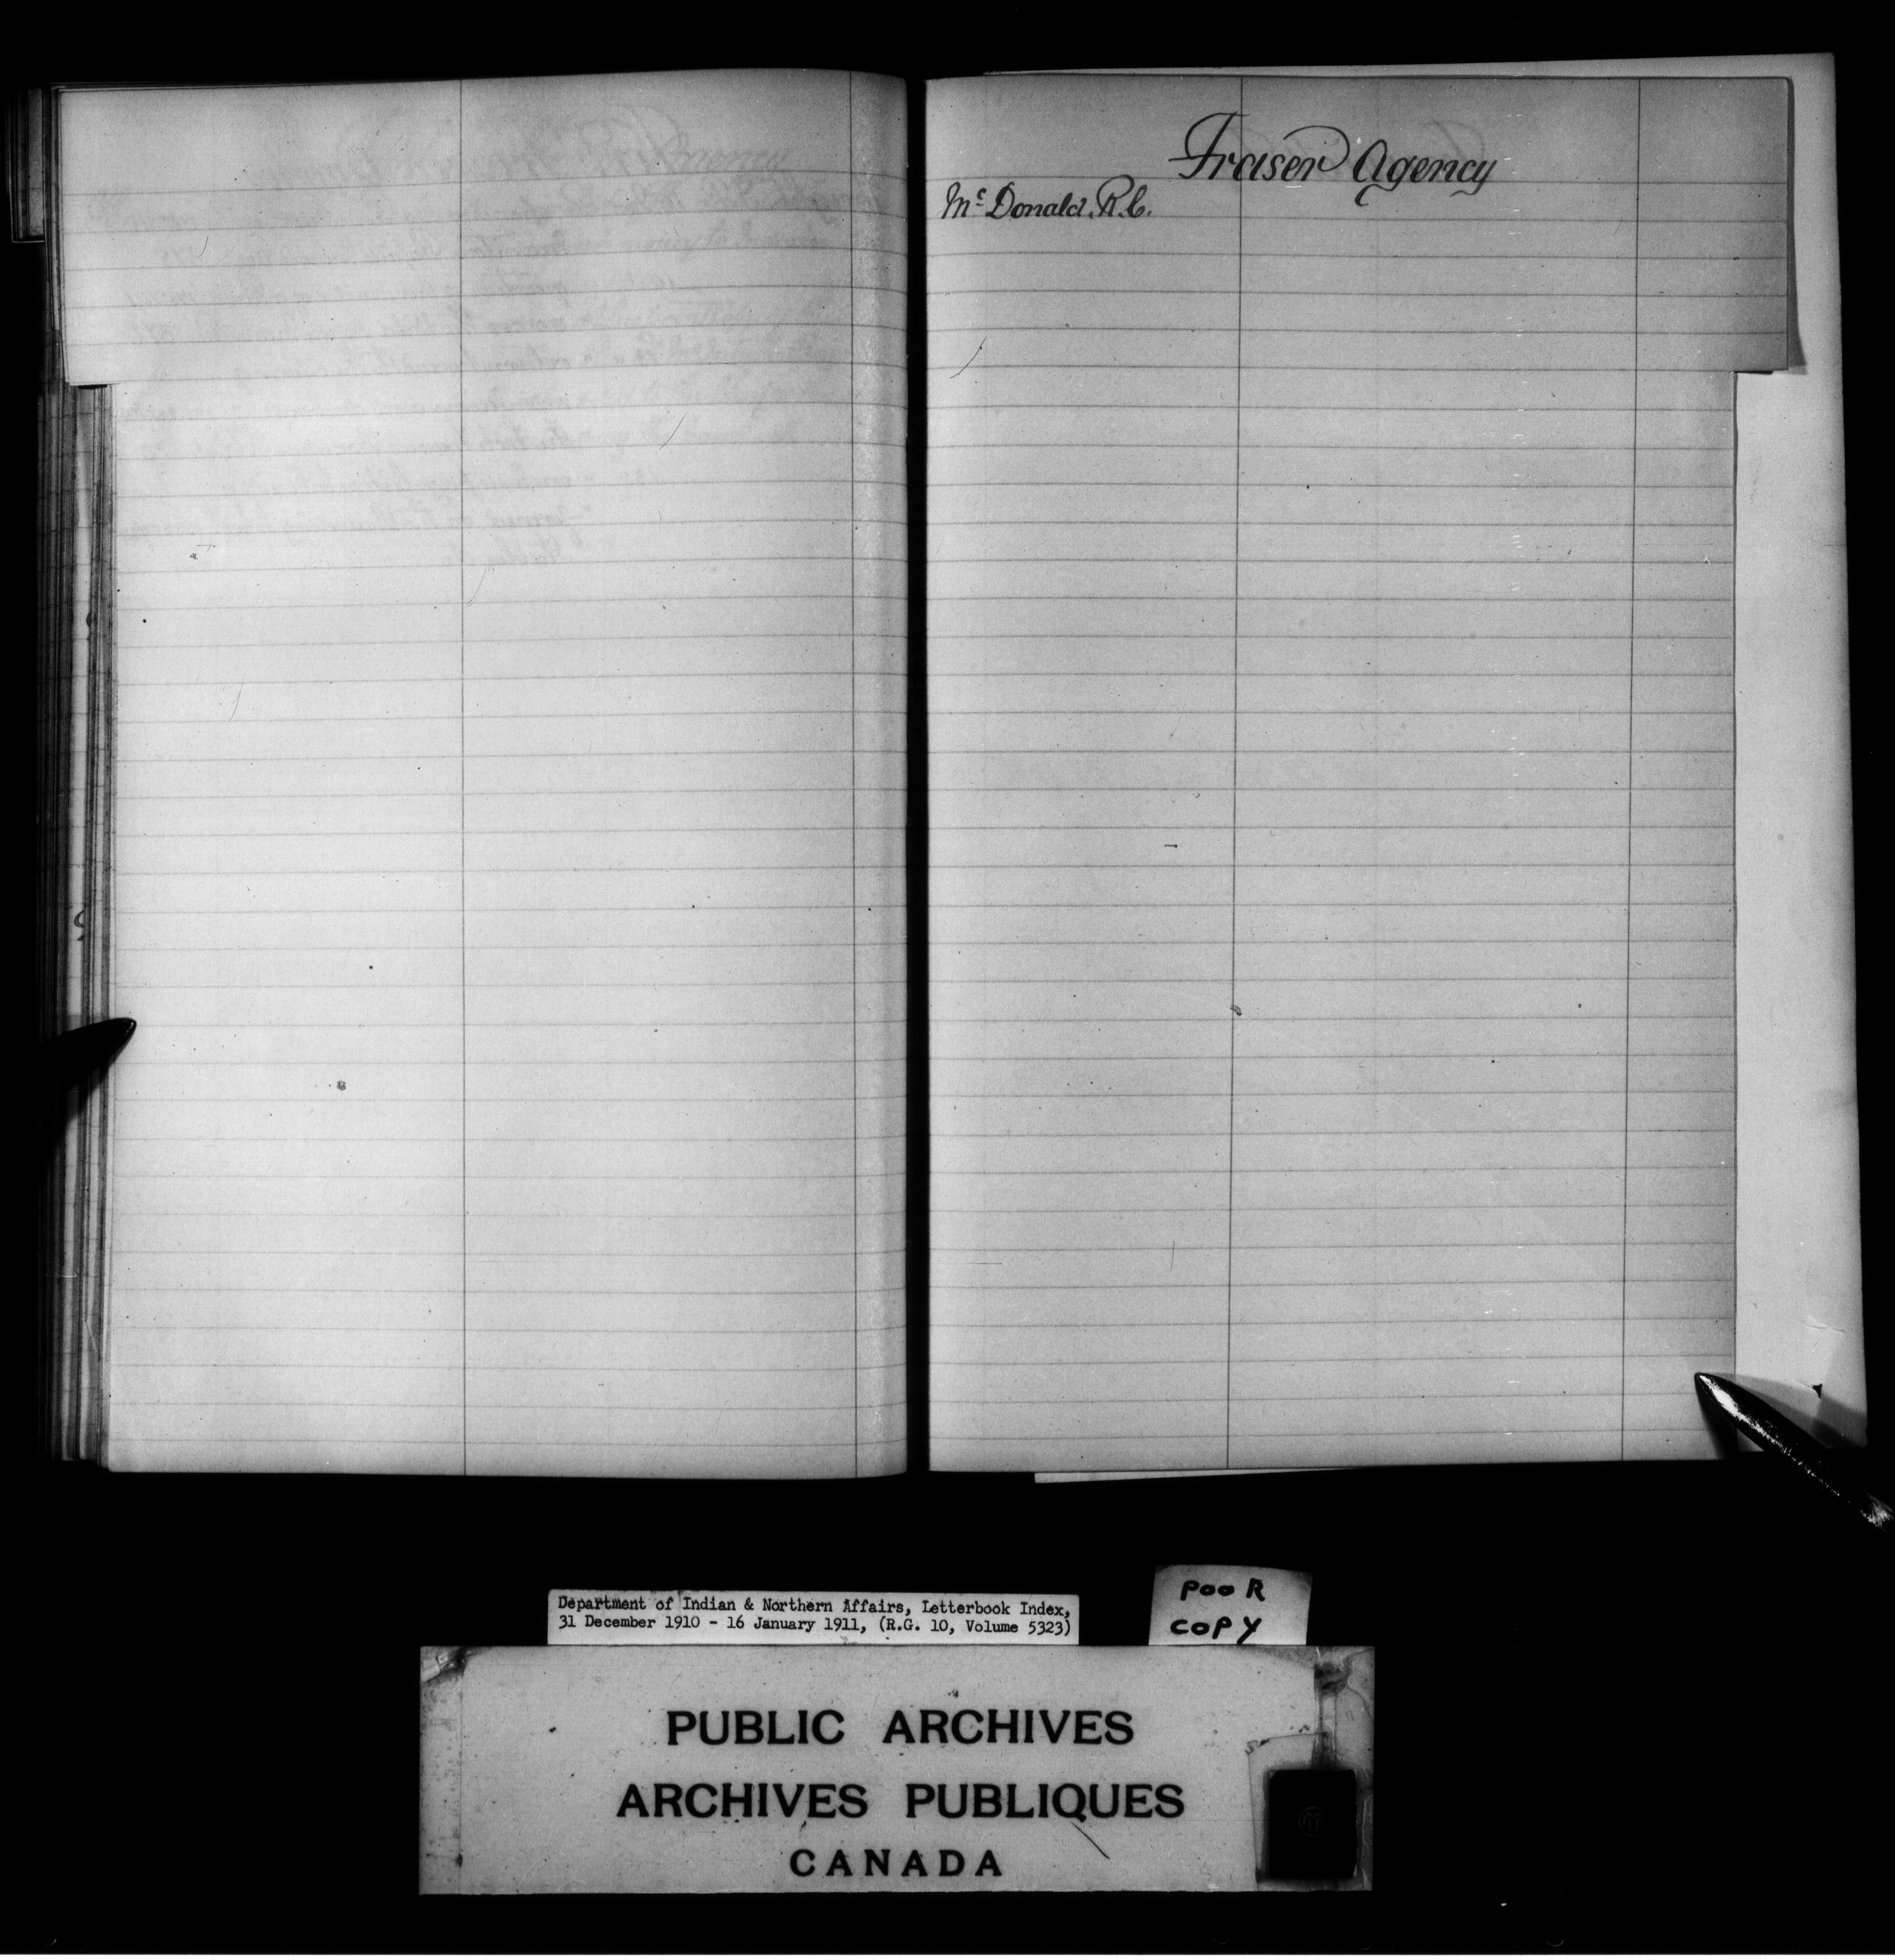 Fraser Agency
Mc Donald. R.C.
Department of Indian & Northern Affairs, Letterbook Index,
31 December 1910 - 16 January 1911, (R.G. 10, Volume 5323)
POOR
COPY
PUBLIC ARCHIVES
ARCHIVES PUBLIQUES
CANADA